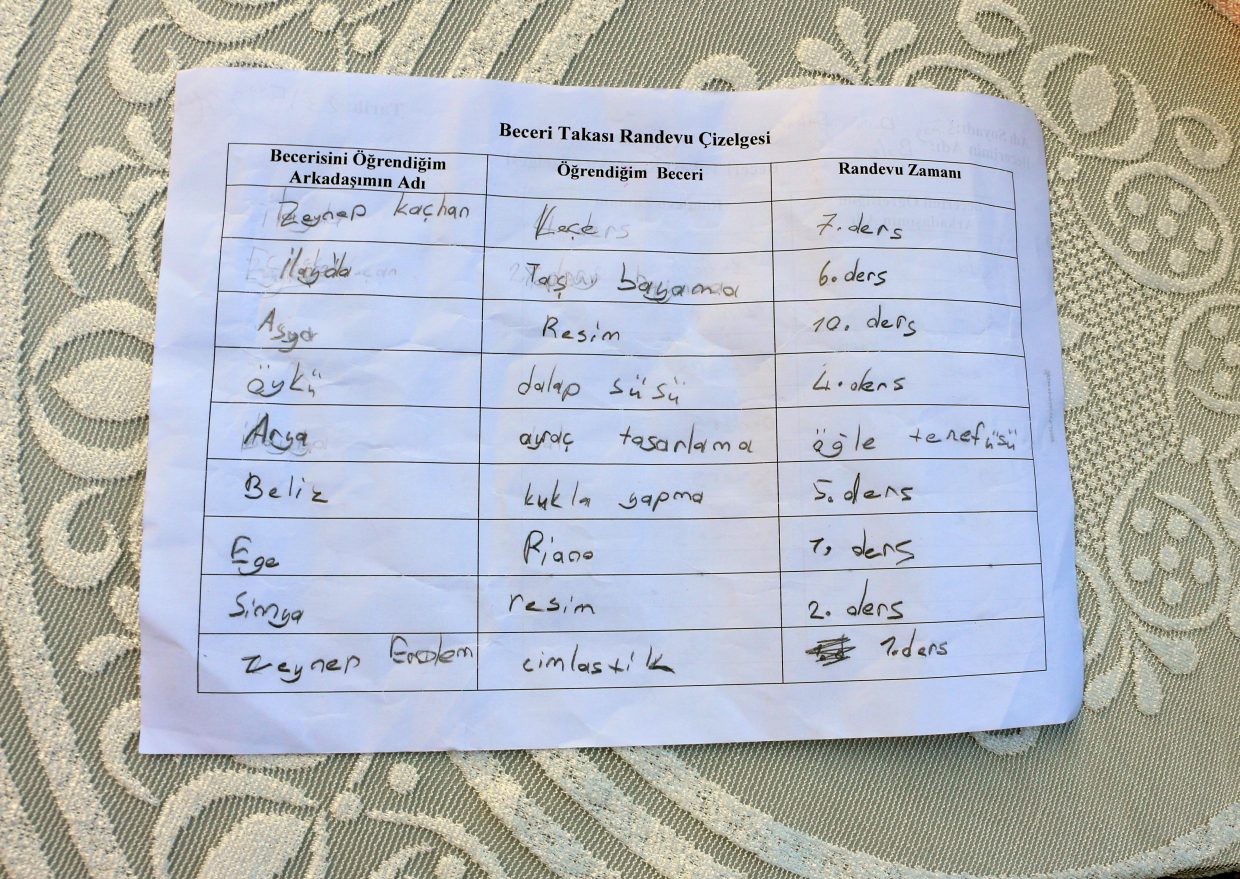 Beceri Takası Randevu Çizelgesi
Becerisini Öğrendiğim Arkadaşımın Adı Öğrendiğim Beceri Randevu Zamanı
Zeynep kaçhan Keçe 7. ders
ilayda Taş bayama 6. ders
Asya Resim 10. ders
öykü dalap süsü 4. ders
Arya ayraç tasarlama öğle tenefüsü
Beliz kukla yapma 5. ders
Ege Piano 1. ders
Simya resim 2. ders
Zeynep Erdem cimlastik 1. ders